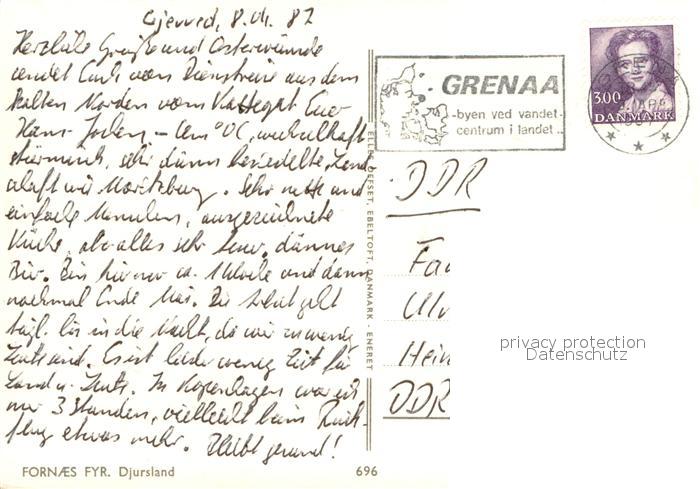 Gjerred, 8.04.87
Herzliche Grüße und Osterwünsche
sendet Euch vom Dienstreise aus dem
kalten Norden vom Kattegat Euer
Hans-Jochen – um 0°C, wechselhaft
stürmisch, sehr dünn besiedelte Land-
schaft wie Moritzburg. Sehr nette und
einfache Menschen, ausgezeichnete
Küche, aber alles sehr teuer, dünnes
Bier. Bin hier nur ca. 1 Woche und dann
nochmal Ende Mai. Die Arbeit geht
tägl. bis in die Nacht, da wir zu wenig
Leute sind. Es ist leider wenig Zeit für
Land u. Leute. In Kopenhagen war ich
nur 3 Stunden, vielleicht beim Rück-
flug etwas mehr. Bleibt gesund!
FORNÆS FYR. Djursland
696
ELLES OFFSET, EBELTOFT, DANMARK - ENERET
GRENAA
-byen ved vandet-
centrum i landet..
3.00
DANMARK
DDR
Fa
Ul
Hein
DDR
privacy protection
Datenschutz